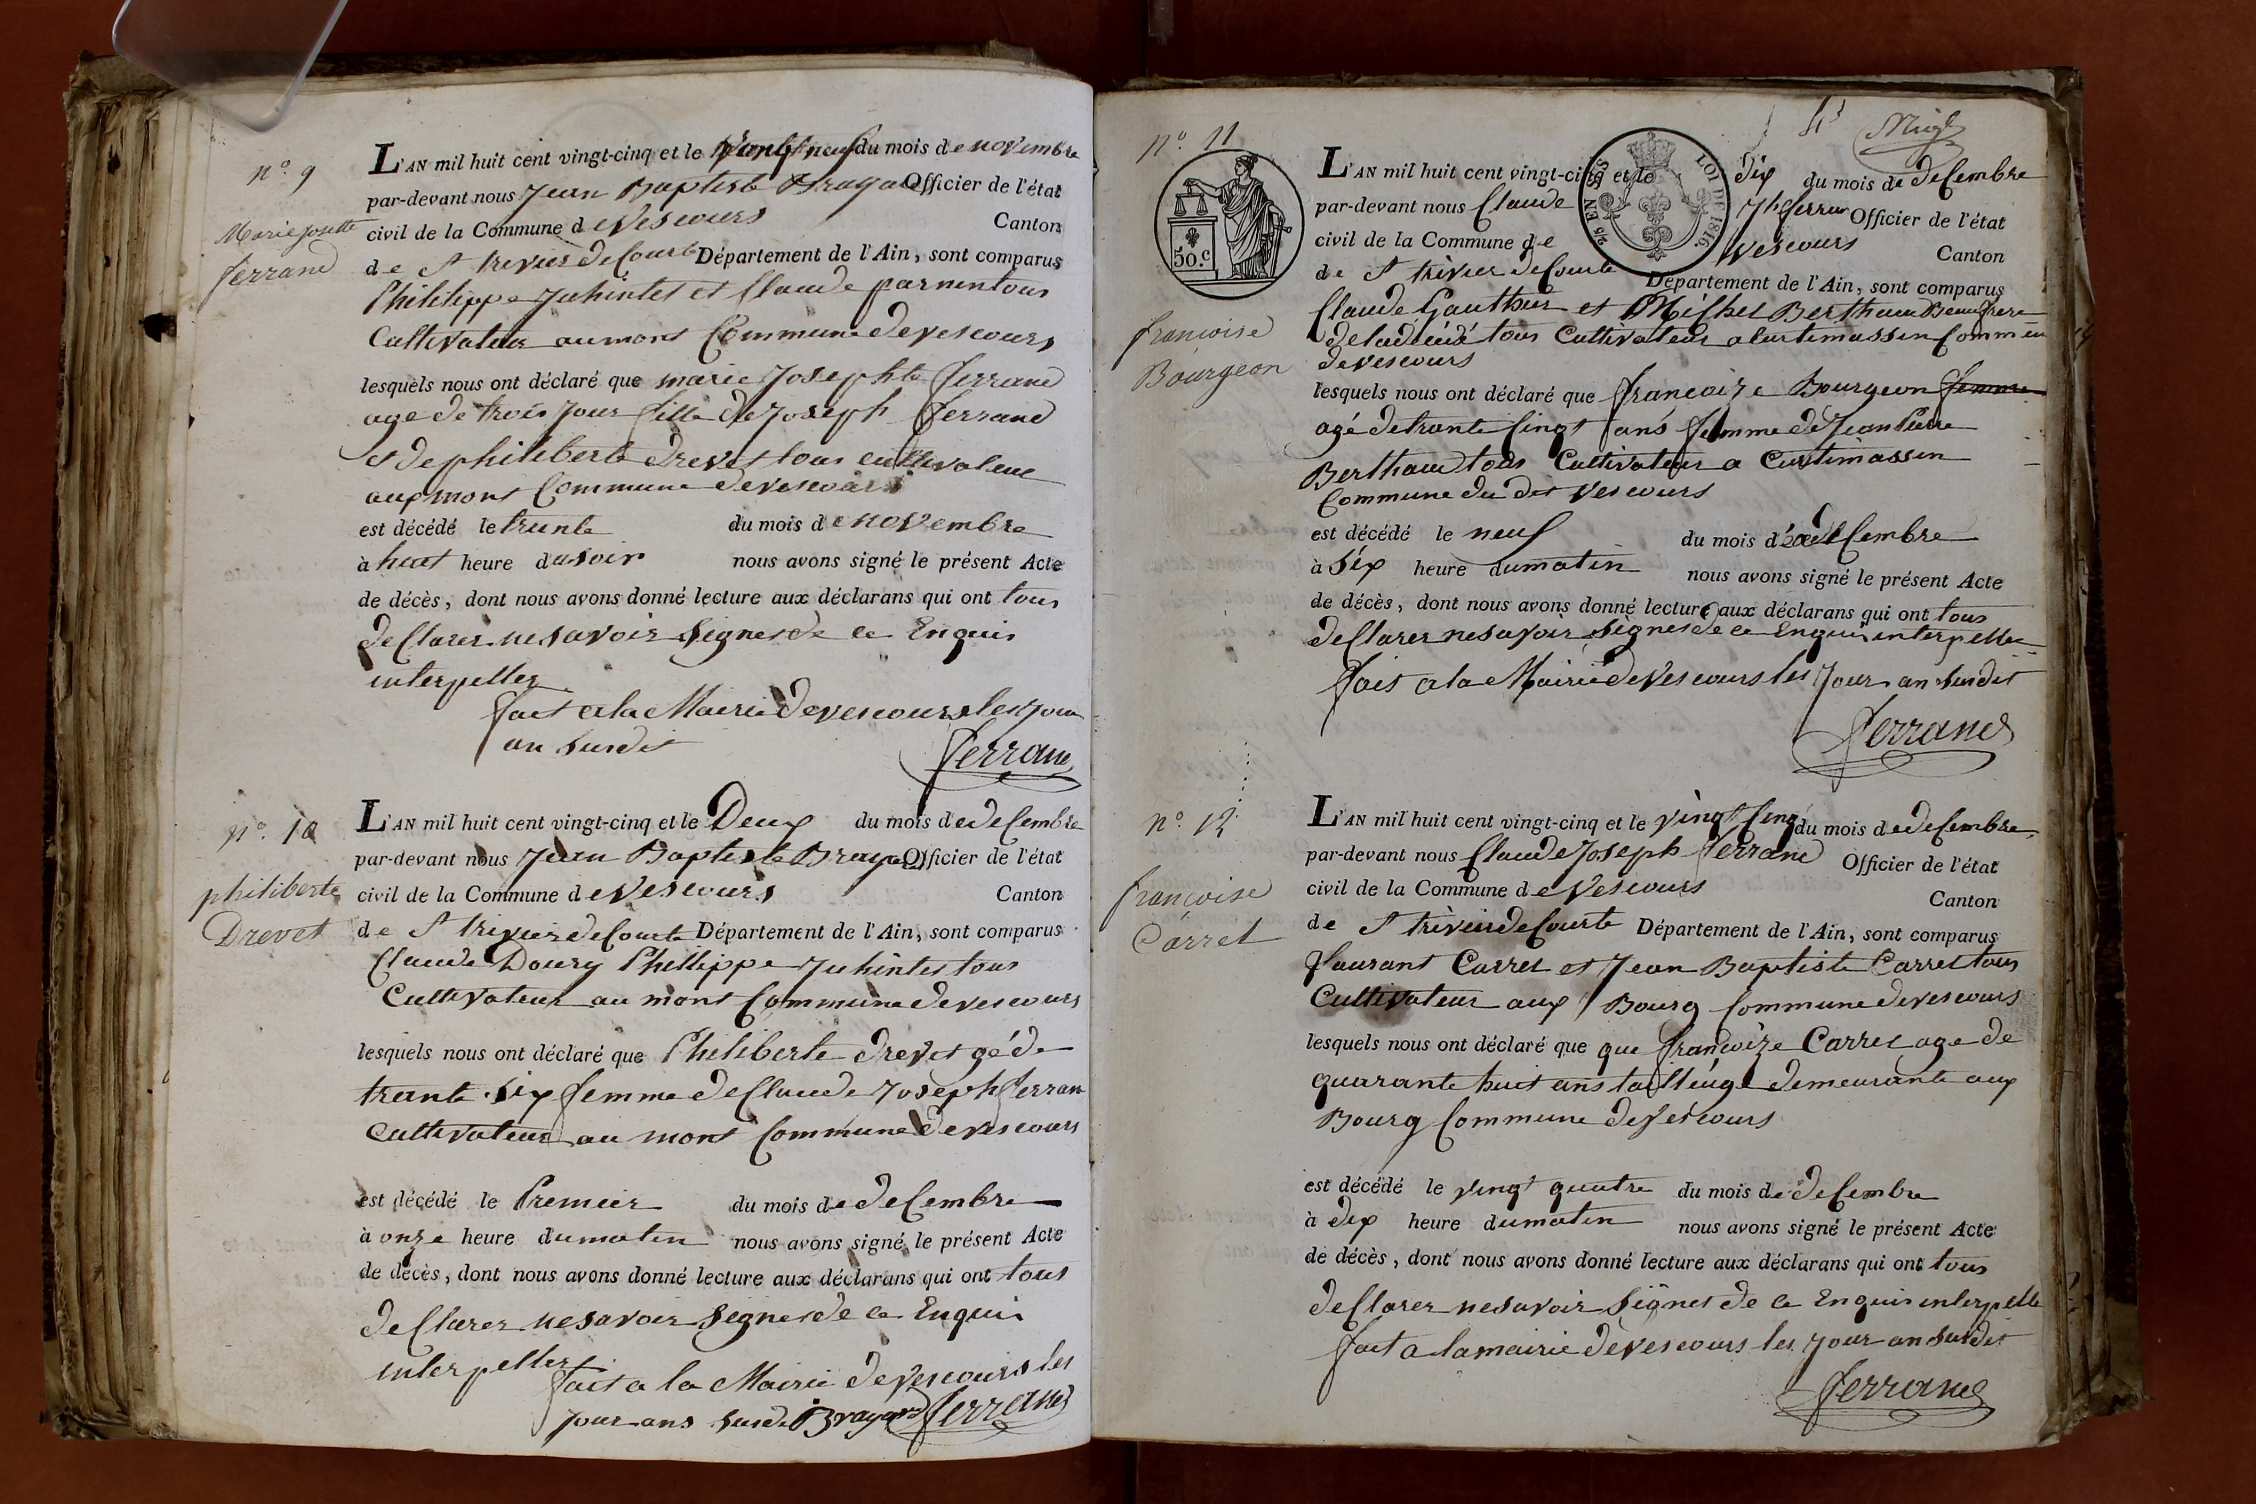 n.o 9
Marie josette
ferrand
L'AN mil huit cent vingt-cinq et le vingt neuf du mois de novembre
par-devant nous Jean Baptiste Brayard Officier de l'état
civil de la Commune de Vescours Canton
de St trivier de Courte Département de l'Ain, sont comparus
Philippe et Claude tous
Cultivateur au mont Commune de vescours
lesquels nous ont déclaré que marie Josephte ferrand
age de trois jour fille de Joseph ferrand
et de philiberte drevet tous cultivateur
aux mont Commune de vescours
est décédé le trente du mois de novembre
à huit heure du soir nous avons signé le présent Acte
de décès, dont nous avons donné lecture aux déclarans qui ont tous
declarer ne savoir signer de ce Enquis
interpeller
fait a la Mairie de vescours les jour
an susdit
ferrand
n.o 10
philiberte
Drevet
L'AN mil huit cent vingt-cinq et le Deux du mois de decembre
par-devant nous Jean Baptiste Brayard Officier de l'état
civil de la Commune de Vescours Canton
de St trivier de Courte Département de l'Ain, sont comparus
Claude Doury Phillippe tous
Cultivateur au mont Commune de vescours
lesquels nous ont déclaré que Philiberte drevet gé de
trante six femme de Claude Joseph ferran
cultivateur au mont Commune de vescours
est décédé le Premier du mois de decembre
à onze heure du matin nous avons signé le présent Acte
de décès, dont nous avons donné lecture aux déclarans qui ont tous
declarer ne savoir signer de ce Enquis
interpeller
fait a la Mairie de vescours les
jour ans susdi Brayard ferrand
n.o 11
françoise
Bourgeon
50.c
2/5 EN SUS
LOI DE 1816
L'AN mil huit cent vingt-cinq et le dix du mois de decembre
par-devant nous Claude Jph ferran Officier de l'état
civil de la Commune de Vescours Canton
de St trivier de Courte Département de l'Ain, sont comparus
Claude Gauthier et Michel Berthaud Beau frere
de la décédé tous Cultivateur a Curtimassin Commun
de vescours
lesquels nous ont déclaré que françoize Bourgeon femme
agé de trante cinqt ans femme de Jean Pierre
Berthaud tous Cultivateur a Curtimassin
Commune du dit vescours
est décédé le neuf du mois de decembre
à six heure du matin nous avons signé le présent Acte
de décès, dont nous avons donné lecture aux déclarans qui ont tous
declarer ne savoir signer de ce Enquis interpeller
fait a la Mairie de vescours les jour an susdit
ferrand
n.o 12
françoise
Carret
L'AN mil huit cent vingt-cinq et le vingt cinq du mois de decembre
par-devant nous Claude Joseph ferrand Officier de l'état
civil de la Commune de Vescours Canton
de St trivier de Courte Département de l'Ain, sont comparus
Laurant Carret et Jean Baptiste Carret tous
Cultivateur aux Bourg Commune de vescours
lesquels nous ont déclaré que que françoize Carret age de
quarante huit ans tailleuge demeurante aux
Bourg Commune de vescours
est décédé le vingt quatre du mois de decembre
à dix heure du matin nous avons signé le présent Acte
de décès, dont nous avons donné lecture aux déclarans qui ont tous
declarer ne savoir signer de ce Enquis interpelle
fait a la mairie de vescours les jour an susdit
ferrand